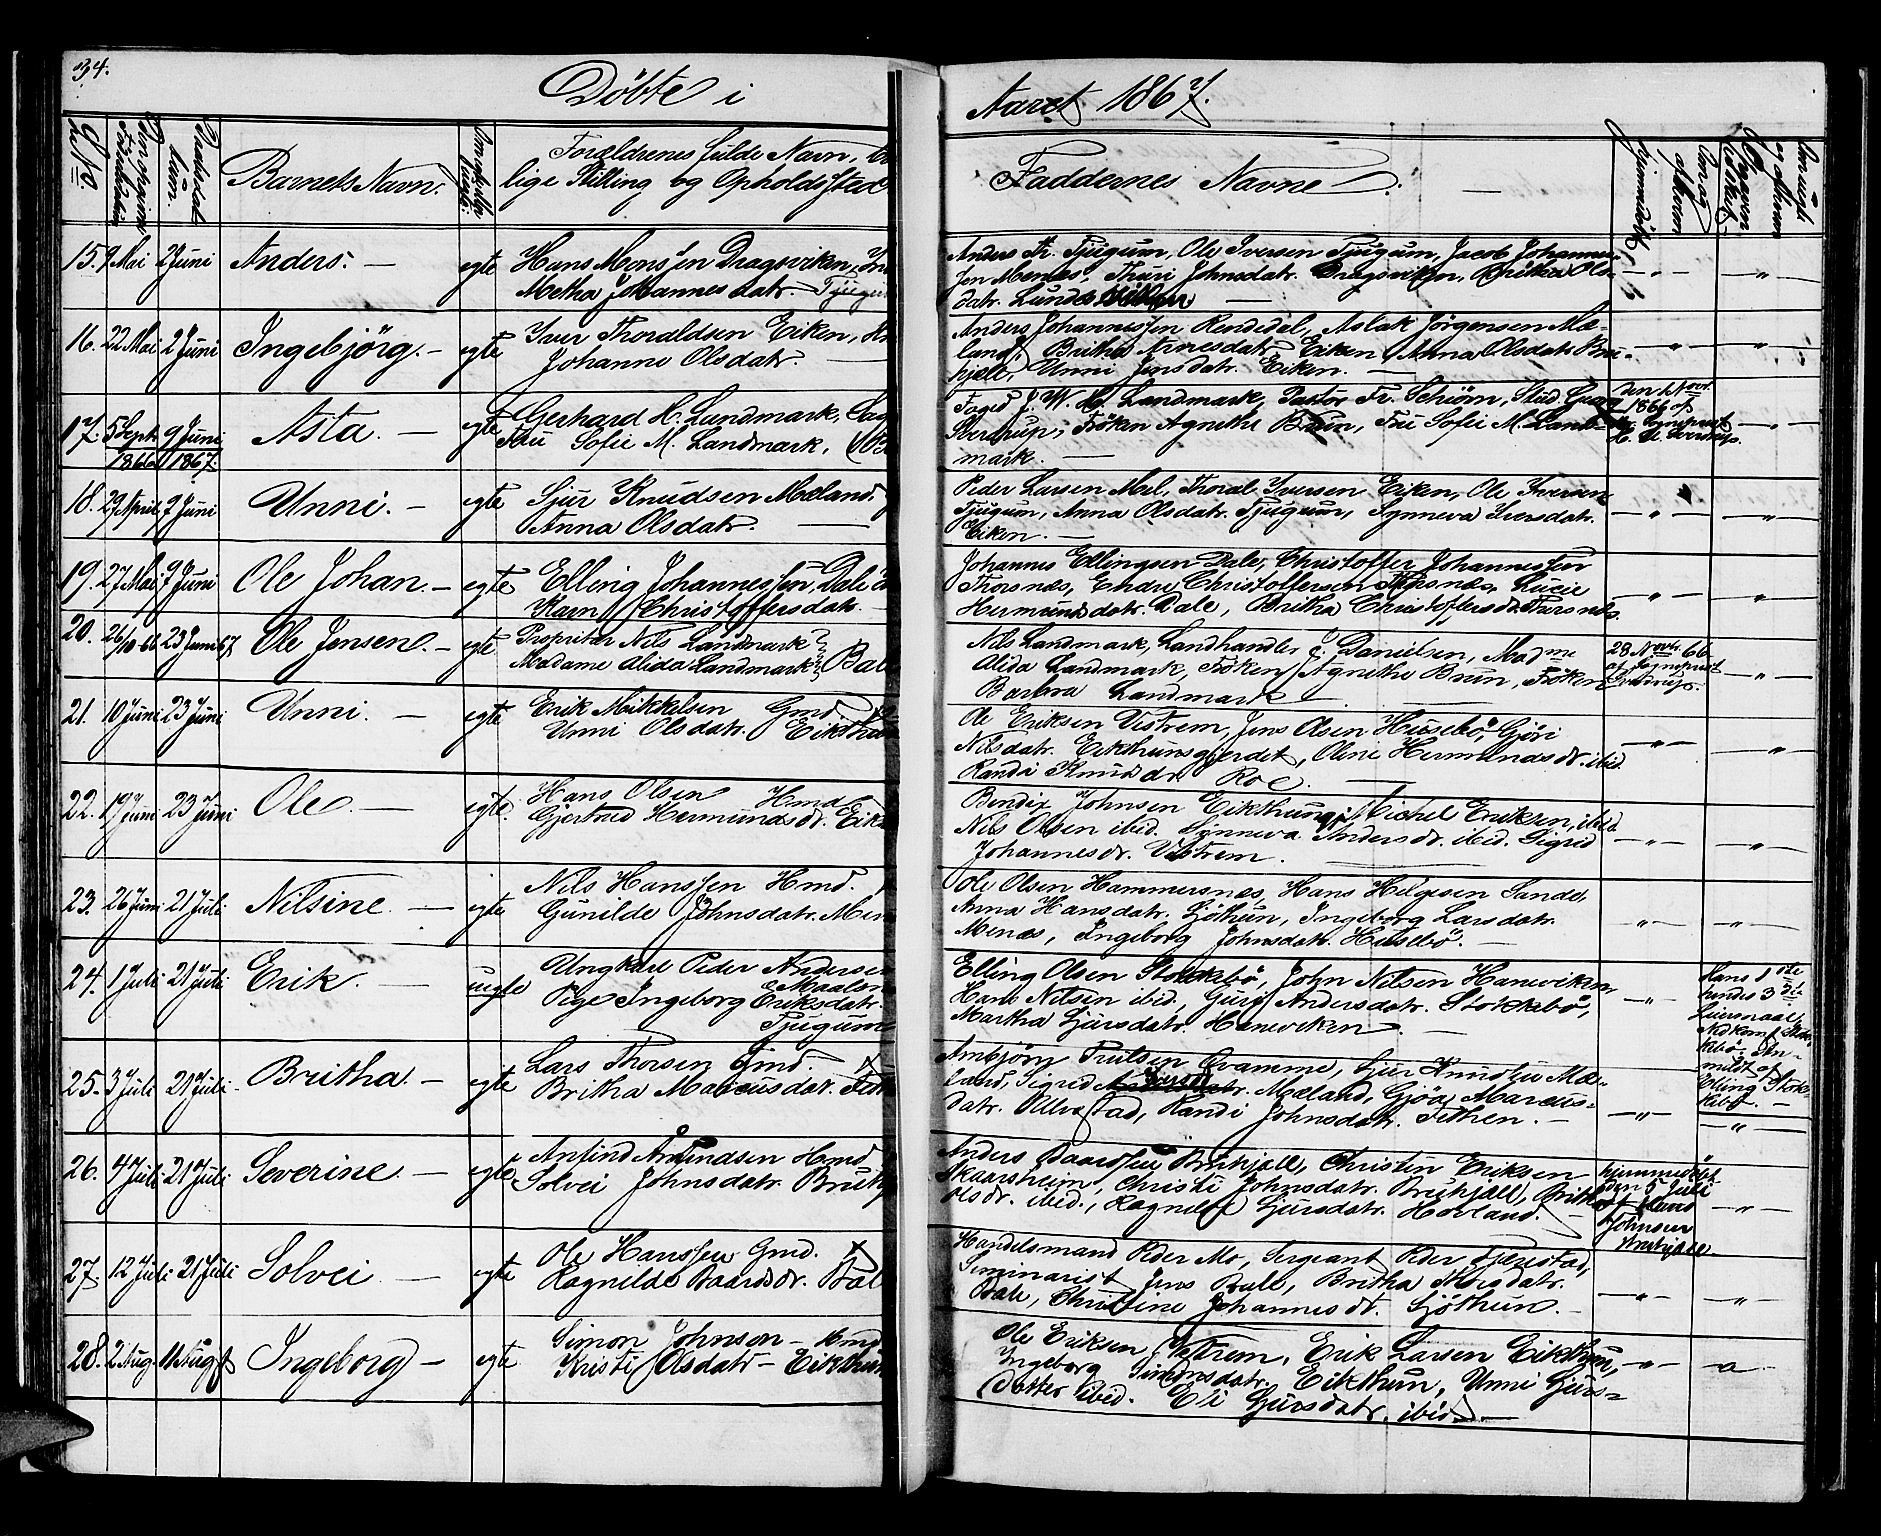 34.
Döbte i
Aaret 1867.
No.
Barnets Navn.
Forældrenes fulde Navn,
lige Stilling og Opholdssted
Faddernes Navne.
15. 9 Mai 2 Juni Anders. — egte Hans Monssen Dragsviken,
Metha Johannesdatr.
Anders Tr. Tjugum, Ole Iversen Tjugum, Jacob Johannes-
sen Menes, Thuri Johnsdatr. Dragsviken, Britha Ols-
datr. Lunde
16. 22 Mai 2 Juni Ingebjörg. — egte Iver Thoraldsen Eiken,
Johanne Olsdatr. —
Anders Johannessen Rendedal, Aslak Jörgensen Mæ-
land, Britha Arnesdatr. Eiken, Anna Olsdatr. Bru-
hjell, Unni Jensdatr. Eiken. —
17. 5 Sept. 9 Juni Asta. — egte Gerhard H. Landmark,
1866 1867. Fru Sofie M. Landmark,
Foged J. W. H. Landmark, Pastor Fr. Schiörn, Stud. Georg
Sverdrup, Fröken Agnethe Brun, Fru Sofie M. Land-
mark. —
den 1 Novr.
1866 af
Hr. Sogneprest
H. U. Sverdrup.
18. 29 April 9 Juni Unni. — egte Sjur Knudsen Mæland,
Anna Olsdatr. —
Peder Larsen Mel, Thoral Iversen Eiken, Ole Iversen
Tjugum, Anna Olsdatr. Tjugum, Synneva Iversdatr.
Eiken. —
19. 27 Mai 9 Juni Ole Johan. — egte Elling Johannessen, Dale
Karn Christoffersdatr. —
Johannes Ellingsen Dale, Christoffer Johannessen
Thorsnæs, Endre Christoffersen Thorsnæs, Lucie
Hermundsdatr. Dale, Britha Christoffersdr. Thorsnæs.
20. 26/10 66 23 Juni 67. Ole Jensen. — egte Proprietær Nils Landmark
Madame Alida Landmark Bale
Nils Landmark, Landhandler J. Danielsen, Madme
Alida Landmark, Fröken Agnethe Brun, Fröken
Barbra Landmark —
28 Novbr. 66
af Sogneprest
Sverdrup.
21. 10 Juni 23 Juni Unni. — egte Erik Mikkelsen Gmd.
Unni Olsdatr. Eikthun
Ole Eriksen Vistrem, Jens Olsen Husebö, Gjöri
Nilsdatr. Eikthunsgjerdet, Oline Hermundsdr. ibid.
Randi Knudsdr. Roe. —
22. 19 Juni 23 Juni Ole — egte. Hans Olsen Hmd.
Gjertrud Hermundsdr. Eikt
Bendix Johnsen Eikthun, Michel Eriksen, ibid
Nils Olsen ibid. Synneva Andersdr. ibid. Sigrid
Johannesdr. Vistrem. —
23. 26 Juni 21 Juli Nilsine. — egte Nils Hanssen Hmd.
Gunilde Johnsdatr. Men
Ole Olsen Hammersnes, Hans Helgesen Sande,
Anna Hansdatr. Sjöthun, Ingeborg Larsdatr.
Menæs, Ingeborg Johnsdatr. Husebö. —
24. 1 Juli 21 Juli Erik. — uegte Ungkarl Peder Andersen
Pige Ingeborg Eriksdatr.
Tjugum
Elling Olsen Stokkebö, John Nilsen Haneviken,
Hans Nilsen ibid., Guro Andersdatr. Stokkebö,
Martha Sjursdatr. Haneviken. —
Hans 1ste
hendes 3die
Leiermaal.
Nedkomst Stok-
kebö. An-
meldt af
Elling Stok-
kebö. —
25. 3 Juli 21 Juli Britha. — egte Lars Thorsen Gmd.
Britha Marcusdatr.
Ambjörn Truitsen Qvamme, Sjur Knudsen Mæ-
land, Sigrid Iversd. Mæland, Gjöa Marcus-
datr. Ulvestad, Randi Johnsdatr. Fethen. —
26. 4 Juli 21 Juli Severine. — egte. Anfind Åmundsen Hmd
Solvei Johnsdatr. Bruhj
Anders Baardsen Bruhjell, Christen Eriksen
Skaarsheim, Christi Johnsdatr. Bruhjell, Britha
Olsdr. ibid., Ragnilde Sjursdatr. Hovland. —
hjemmedöbt
den 5 Juli
Johnsen
Bruhjell
27. 12 Juli 21 Juli Solvei. — egte Ole Hanssen Gmd.
Ragnilde Baardsdr. Bal
Handelsmand Peder Mo, Sergeant Peder Tjerestad,
Seminarist Jens Bale, Britha Thorsdatr.
Bale, Christine Johannesdt. Sjöthun. —
28. 2 Aug. 11 Aug. Ingeborg — egte Simon Johnson — Hmd
Kristi Olsdatr — Eikthun
Ole Eriksen Vistrem, Erik Larsen Eikthun,
Ingeborg Simonsdatr. Eikthun, Unni Sjurs-
datter ibid. Eli Sjursdatr. ibid. —